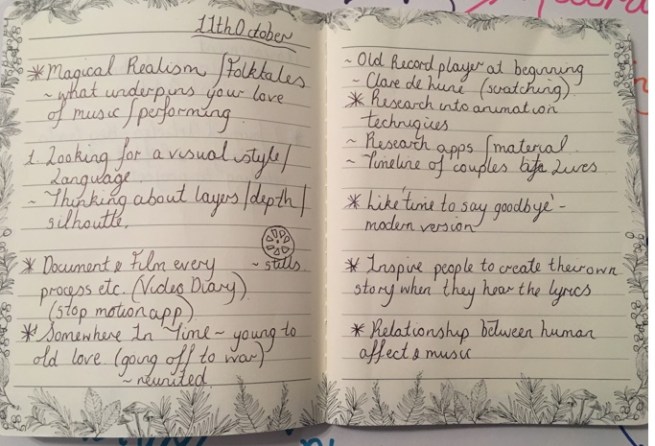 11th October
* Magical Realism / Folktales
~ what underpins your love
of music / performing
1. Looking for a visual style /
Language.
~ Thinking about layers / depth /
silhoutte.
* Document & Film every ~ stills.
process etc. (Video Diary)
(stop motion app)
* Somewhere In Time ~ young to
old love (going off to war)
~ reunited.
~ Old Record player at beginning
~ Clare de lune (scratching)
* Research into animation
techniques
~ Research apps / material
~ Timeline of couples Lives
* Like 'time to say goodbye' -
modern version
* Inspire people to create their own
story when they hear the lyrics
* Relationship between human
affect & music